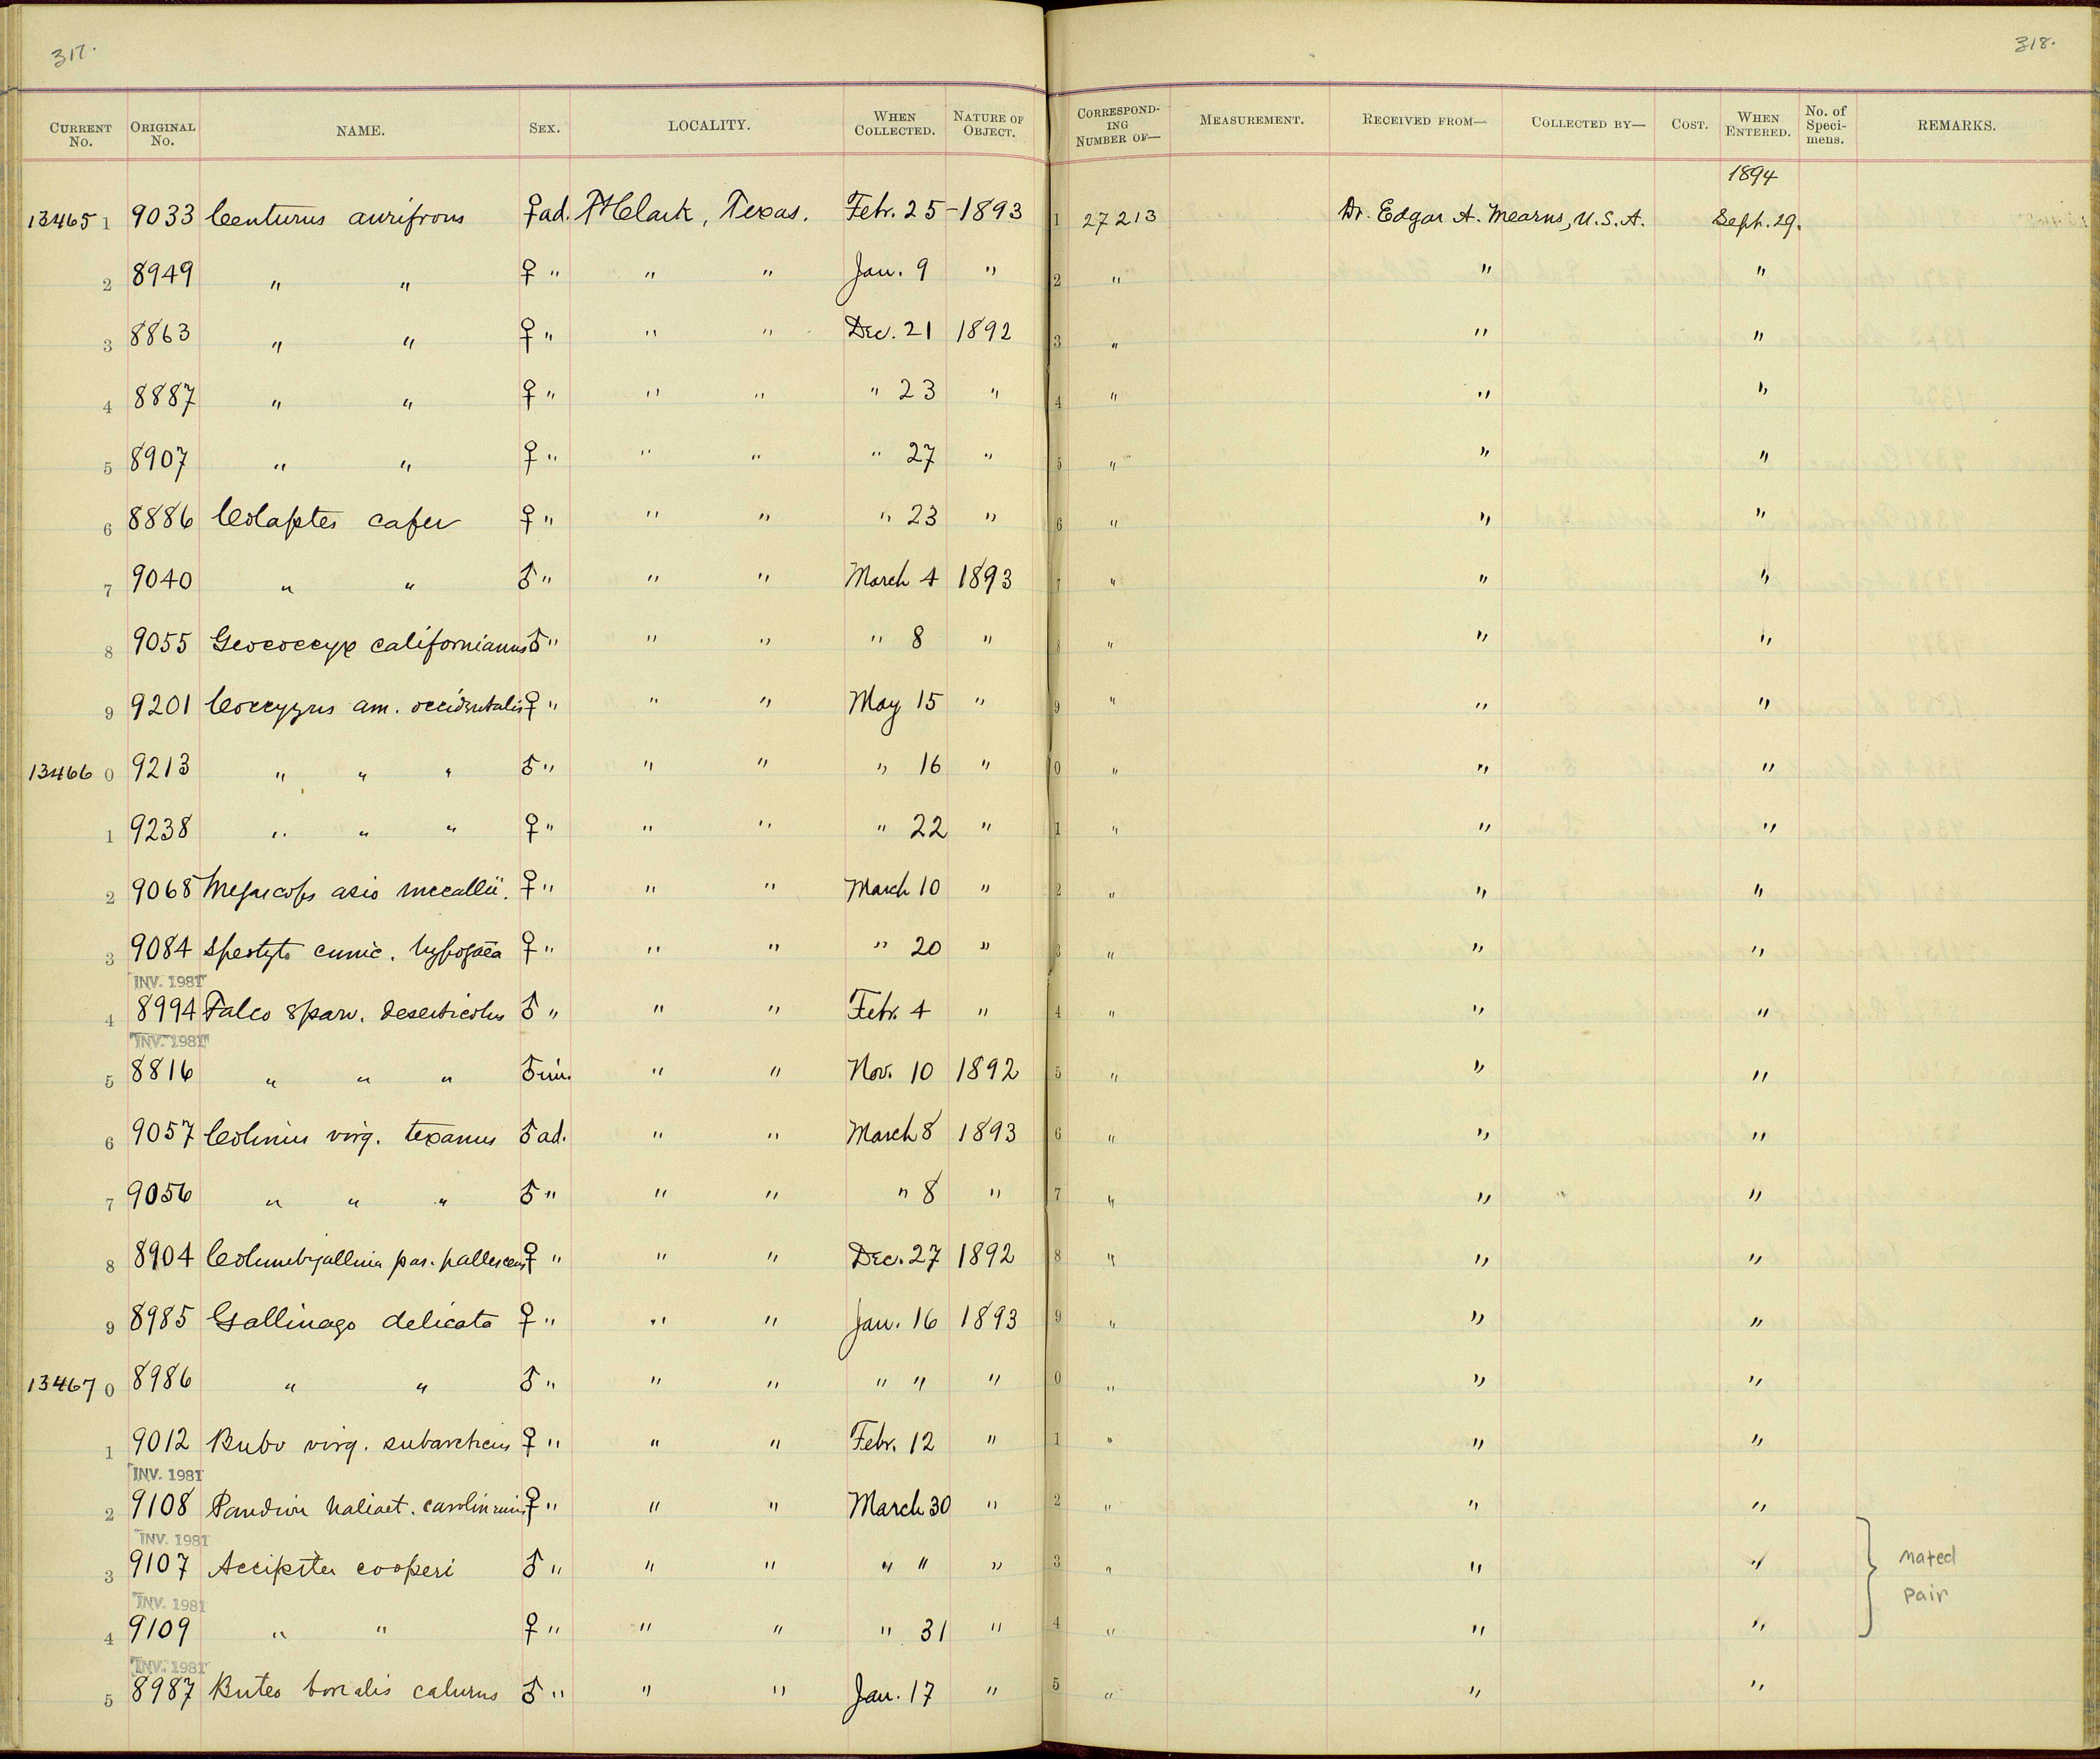 317.
318.
CURRENT No. ORIGINAL No. NAME. SEX. LOCALITY. WHEN COLLECTED. NATURE OF OBJECT. CORRESPONDING NUMBER OF— MEASUREMENT. RECEIVED FROM— COLLECTED BY— COST. WHEN ENTERED. No. of Specimens. REMARKS.
1894
13465 1 9033 Centurus aurifrons ♀ ad. Ft Clark, Texas. Febr. 25 - 1893 1 27213 Dr. Edgar A. Mearns, U.S.A. Sept. 29.
2 8949 " " ♀ " " " Jan. 9 " 2 " " "
3 8863 " " ♀ " " " Dec. 21 1892 3 " " "
4 8887 " " ♀ " " " " 23 " 4 " " "
5 8907 " " ♀ " " " " 27 " 5 " " "
6 8886 Colaptes cafer ♀ " " " " 23 " 6 " " "
7 9040 " " ♂ " " " March 4 1893 7 " " "
8 9055 Geococcyx californianus ♂ " " " " 8 " 8 " " "
9 9201 Coccyzus am. occidentalis ♀ " " " May 15 " 9 " " "
13466 0 9213 " " " ♂ " " " " 16 " 0 " " "
1 9238 " " " ♀ " " " " 22 " 1 " " "
2 9068 Megascops asio mccallii. ♀ " " " March 10 " 2 " " "
3 9084 Speotyto cunic. hypogaea ♀ " " " " 20 " 3 " " "
INV. 1981
4 8994 Falco sparv. deserticolus ♂ " " " Febr. 4 " 4 " " "
INV. 1981
5 8816 " " " ♂ im. " " Nov. 10 1892 5 " " "
6 9057 Colinus virg. texanus ♂ ad. " " March 8 1893 6 " " "
7 9056 " " " ♂ " " " " 8 " 7 " " "
8 8904 Columbigallina pas. pallescens ♀ " " " Dec. 27 1892 8 " " "
9 8985 Gallinago delicata ♀ " " " Jan. 16 1893 9 " " "
13467 0 8986 " " ♂ " " " " " " 0 " " "
1 9012 Bubo virg. subarcticus ♀ " " " Febr. 12 " 1 " " "
INV. 1981
2 9108 Pandion haliaet. carolinensis ♀ " " " March 30 " 2 " " "
INV. 1981
3 9107 Accipiter cooperi ♂ " " " " " " 3 " " " mated
INV. 1981
pair
4 9109 " " ♀ " " " " 31 " 4 " " "
INV. 1981
5 8987 Buteo borealis calurus ♂ " " " Jan. 17 " 5 " " "